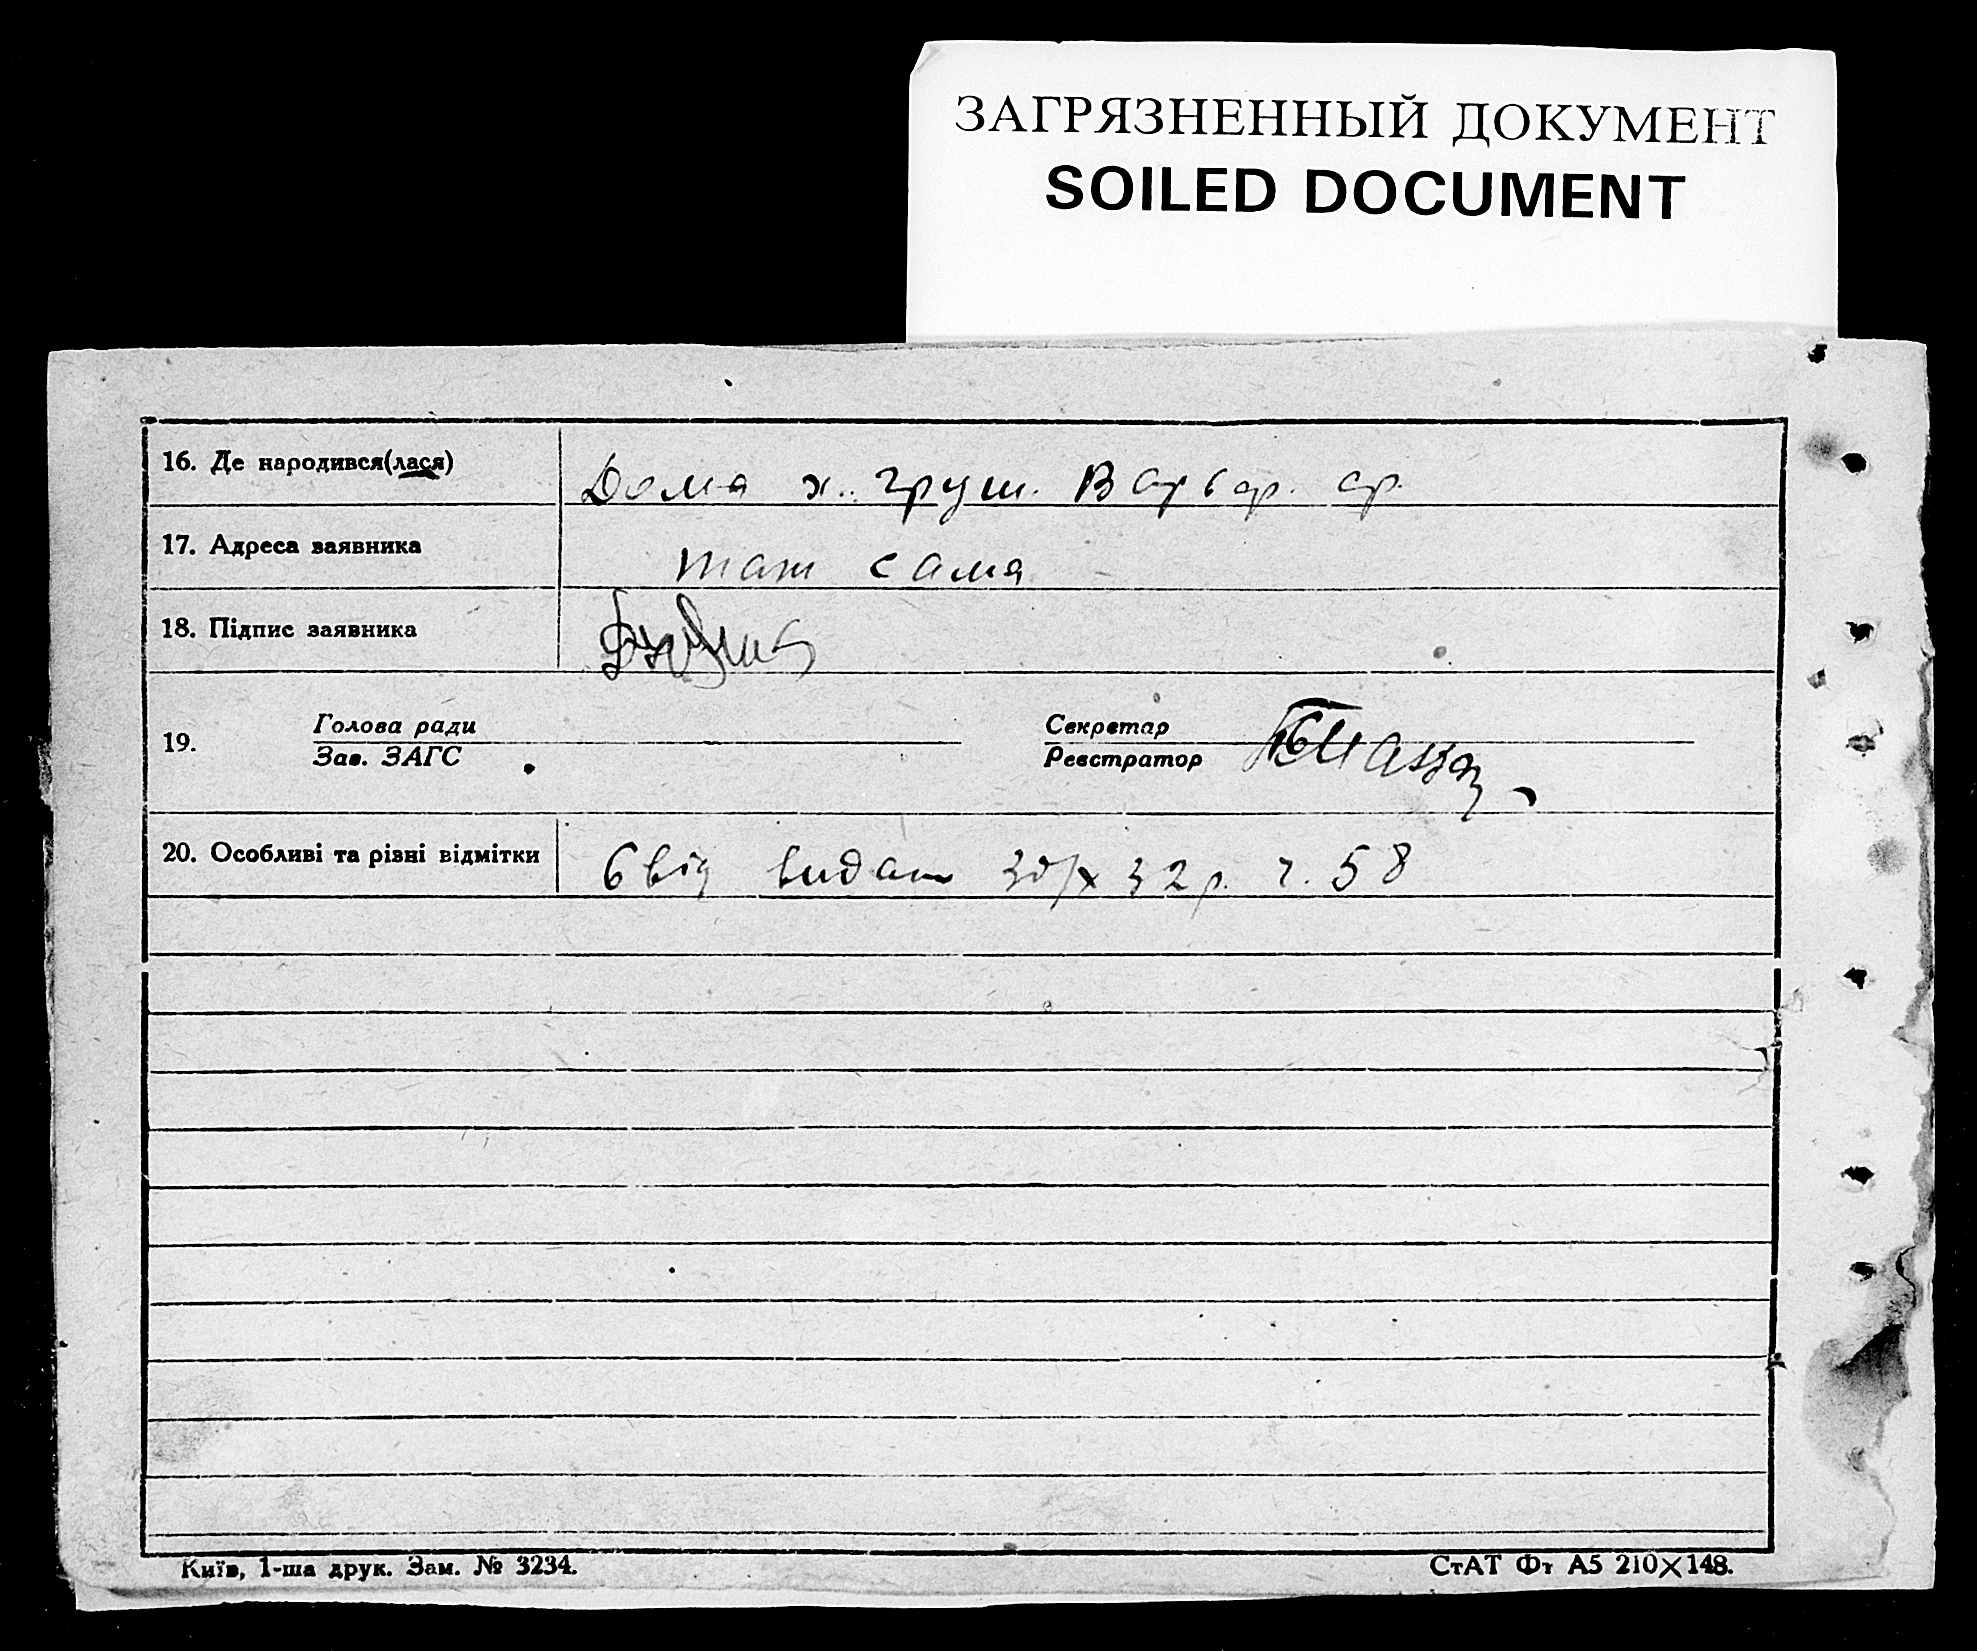 ЗАГРЯЗНЕННЫЙ ДОКУМЕНТ
SOILED DOCUMENT
16. Де народився(лася) Дома х. груш. Варвар. ср.
17. Адреса заявника таж сама
18. Підпис заявника
19. Голова ради Секретар
Зав. ЗАГС Реєстратор
20. Особливі та різні відмітки видан 32 р. ч. 58
Київ, 1-ша друк. Зам. № 3234. СтАТ Фт А5 210×148.